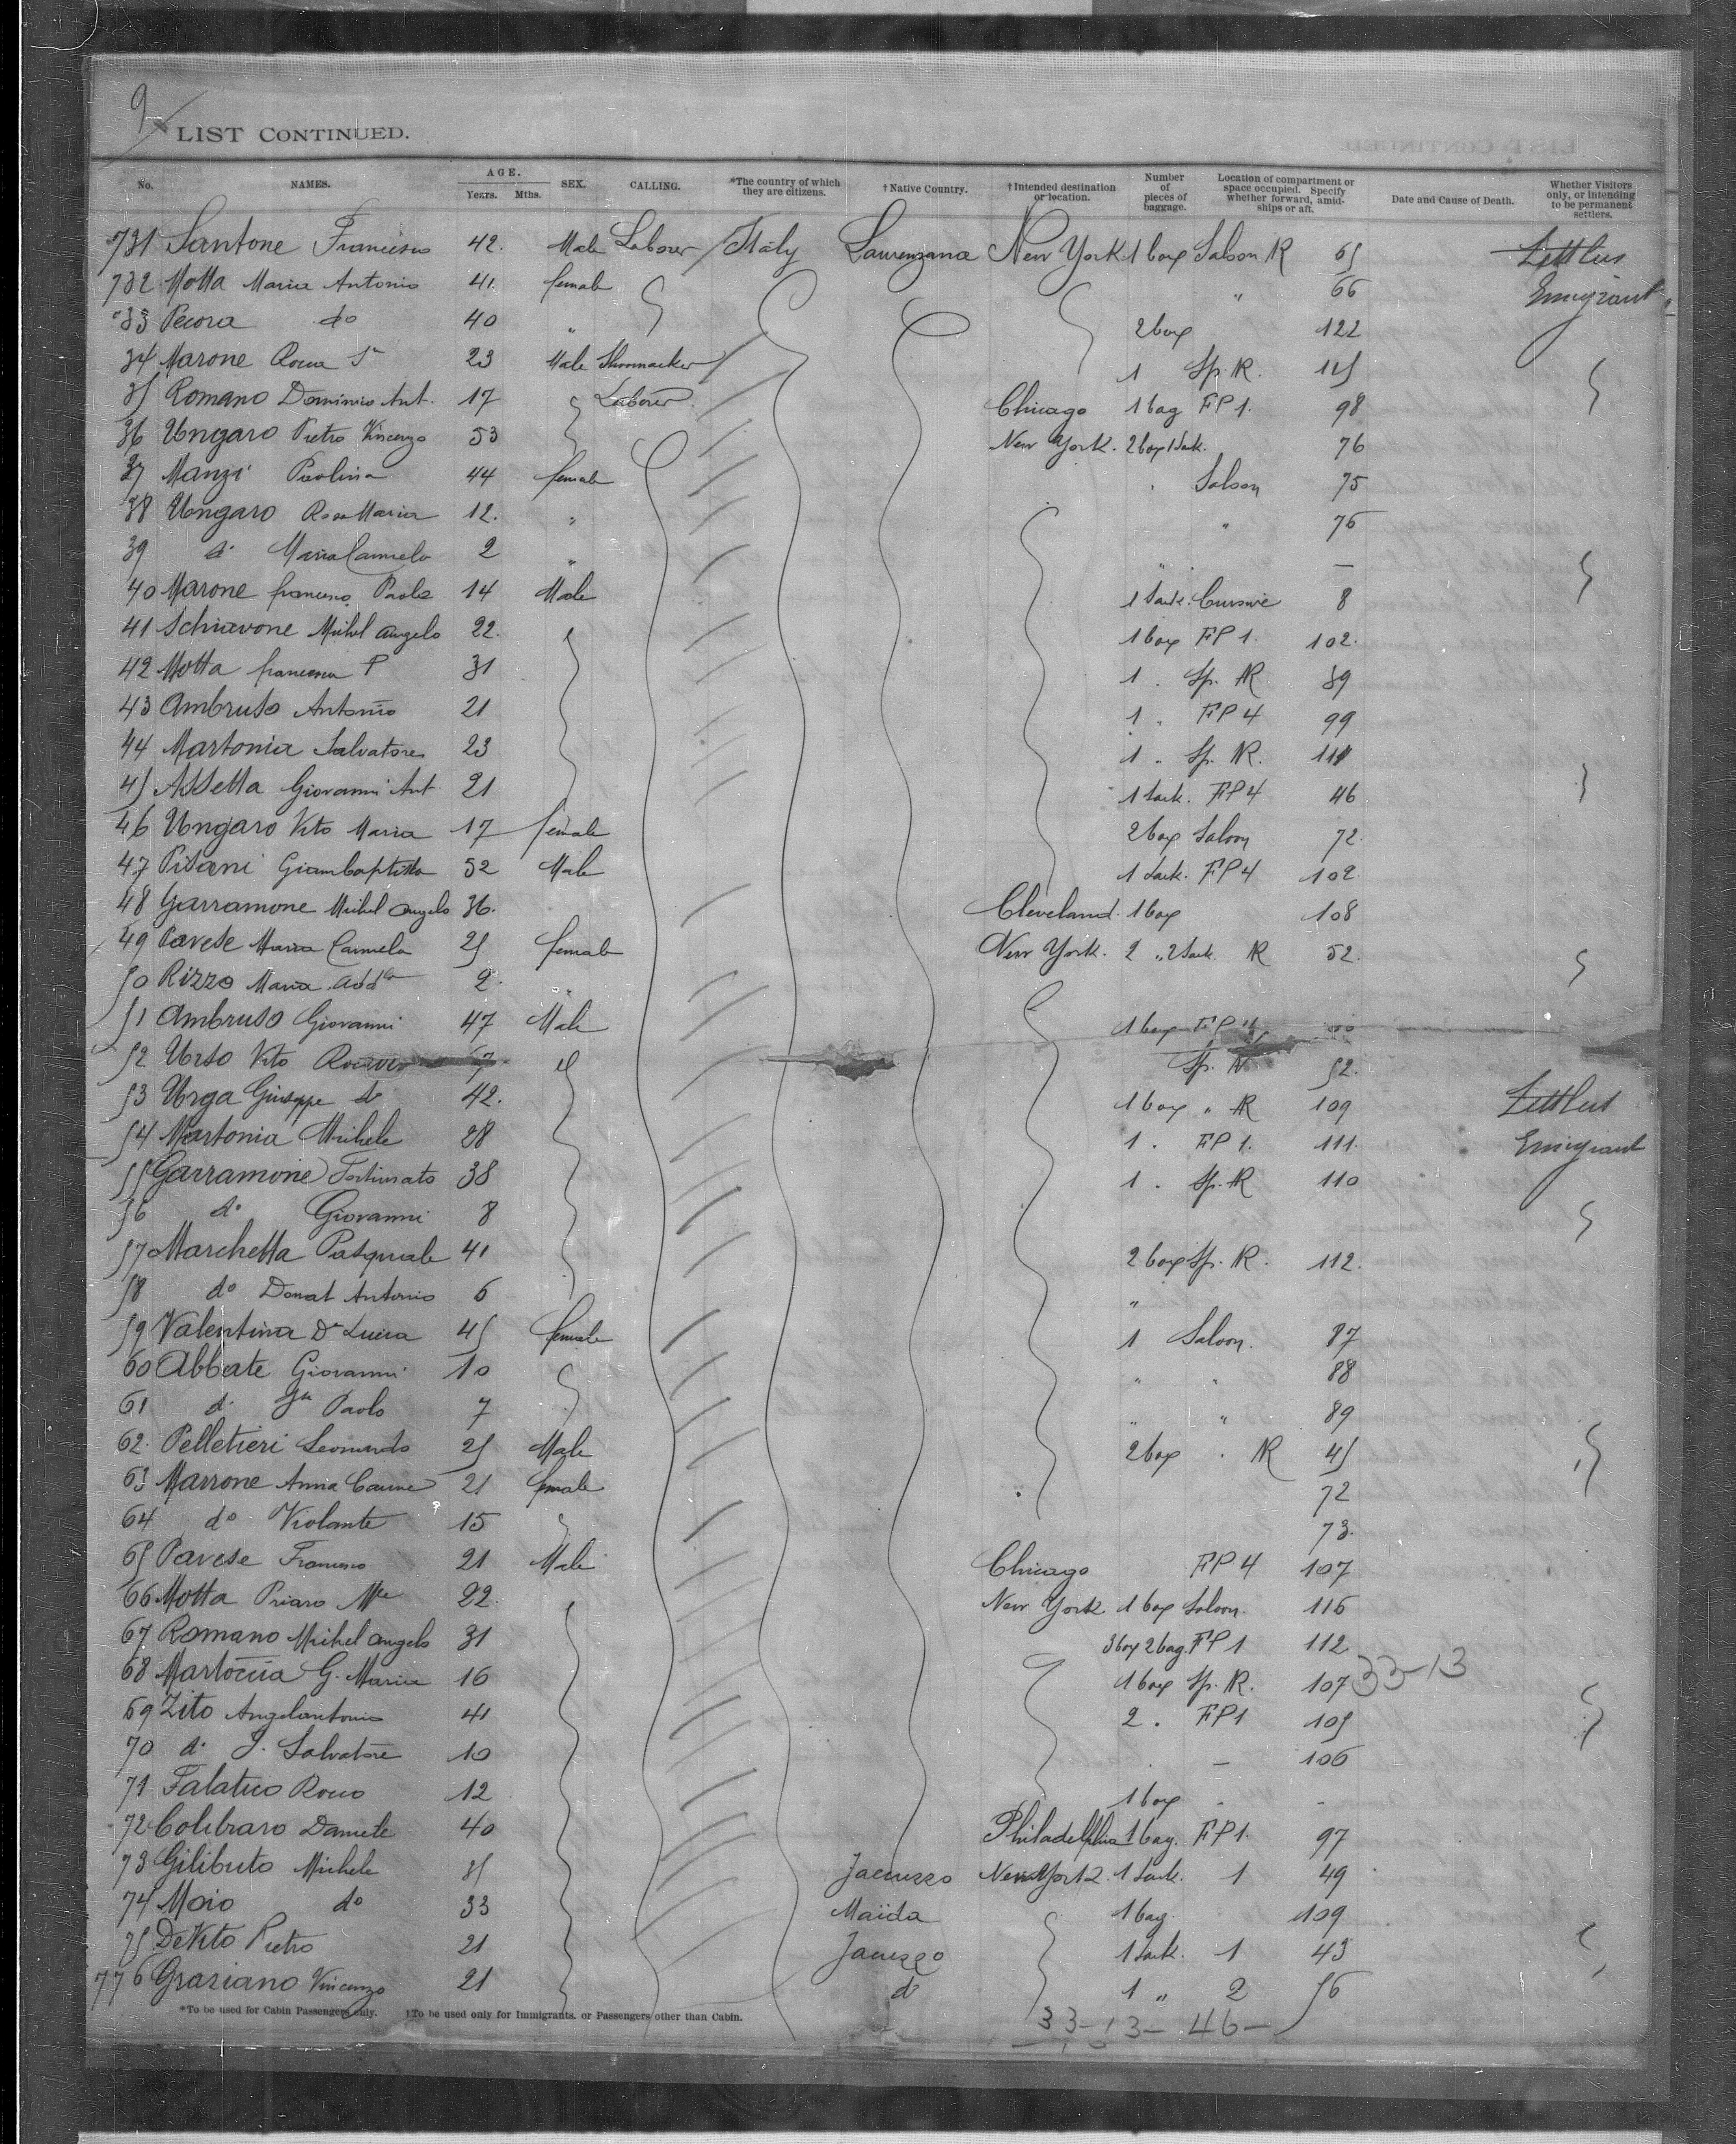 9
LIST CONTINUED.
No. NAMES. AGE. Years. Mths. SEX. CALLING. *The country of which they are citizens. †Native Country. †Intended destination or location. Number of pieces of baggage. Location of compartment or space occupied. Specify whether forward, amidships or aft. Date and Cause of Death. Whether Visitors only, or intending to be permanent settlers.
731 Santone Francesco 42. Male Laborer Italy Laurenzana New York 1 box Saloon R 65 Settlers
732 Motta Maria Antonio 41 female " 66 Emigrant
33 Pecora do 40 " 2 box 122
34 Marone Rocco 23 Male Shoomacker 1 Sp. R. 115
35 Romano Dominic Ant. 17 Laborer Chicago 1 bag FP 1. 98
36 Ungaro Pietro Vincenzo 53 New York. 2 box 1 Sack. 76
37 Manzi Paolina 44 female Saloon 75
38 Ungaro Rosa Maria 12. " " 76
39 do Maria Carmela 2 " " —
40 Marone francesco Paolo 14 Male 1 Sack. 8
41 Schiavone Michel Angelo 22. 1 box FP 1. 102.
42 Motta francesco P 31 1 . Sp. R 89
43 Ambruso Antonio 21 1 . FP 4 99
44 Martonia Salvatore 23 1 . Sp. R. 111
45 Assetta Giovanni Ant 21 1 Sack. FP 4 46
46 Ungaro Vito Maria 17 female 2 box Saloon 72
47 Pisani Giambaptista 52 Male 1 Sack. FP 4 102
48 Garramone Michel Angelo 36. Cleveland. 1 box 108
49 Pavese Maria Carmela 25 female New York. 2 " 2 Sack. R 52.
50 Rizzo Maria 2.
51 Ambruso Giovanni 47 Male 1 box FP 4
52 Urso Vito 7 Sp. R 52.
53 Urga Giuseppe do 42. 1 box " R 109 Settlers
54 Martonia Michele 28 1 . FP 1. 111. Emigrant
55 Garramone Fortunato 38 1 . Sp. R 110
56 do Giovanni 8
57 Marchetta Pasquale 41 2 box Sp. R. 112.
58 do Donat Antonio 6 "
59 Valentina Da Luisa 45 female 1 Saloon. 87
60 Abbate Giovanni 10 " " 88
61 do Paolo 7 " " 89
62. Pelletieri Leonardo 25 Male 2 box . R 45
63 Marrone Anna Carme 21 female 72
64 do Violante 15 73.
65 Pavese Francesco 21 Male Chicago FP 4 107
66 Motta Priaro 22. New York 1 box Saloon. 116
67 Romano Michel Angelo 31 3 box 2 bag. FP 1 112
68 Martoccia G. Maria 16 1 box Sp. R. 107 33-13
69 Zito Angelantonio 41 2 . FP 1 105
70 do G. Salvatore 10 . — 106
71 Falatico Rocco 12 1 box
72 Colibraro Daniele 40 Philadelphia 1 bag. FP 1. 97
73 Gilibuto Michele 35 Jacurso New York 1 Sack. 1 49
74 Moio do 33 Maida 1 bag. 109
75 DeVito Pietro 21 Jacurso 1 Sack. 1 43
776 Graziano Vincenzo 21 do 1 " 2 56
*To be used for Cabin Passengers only. †To be used only for Immigrants. or Passengers other than Cabin.
33-13- 46-